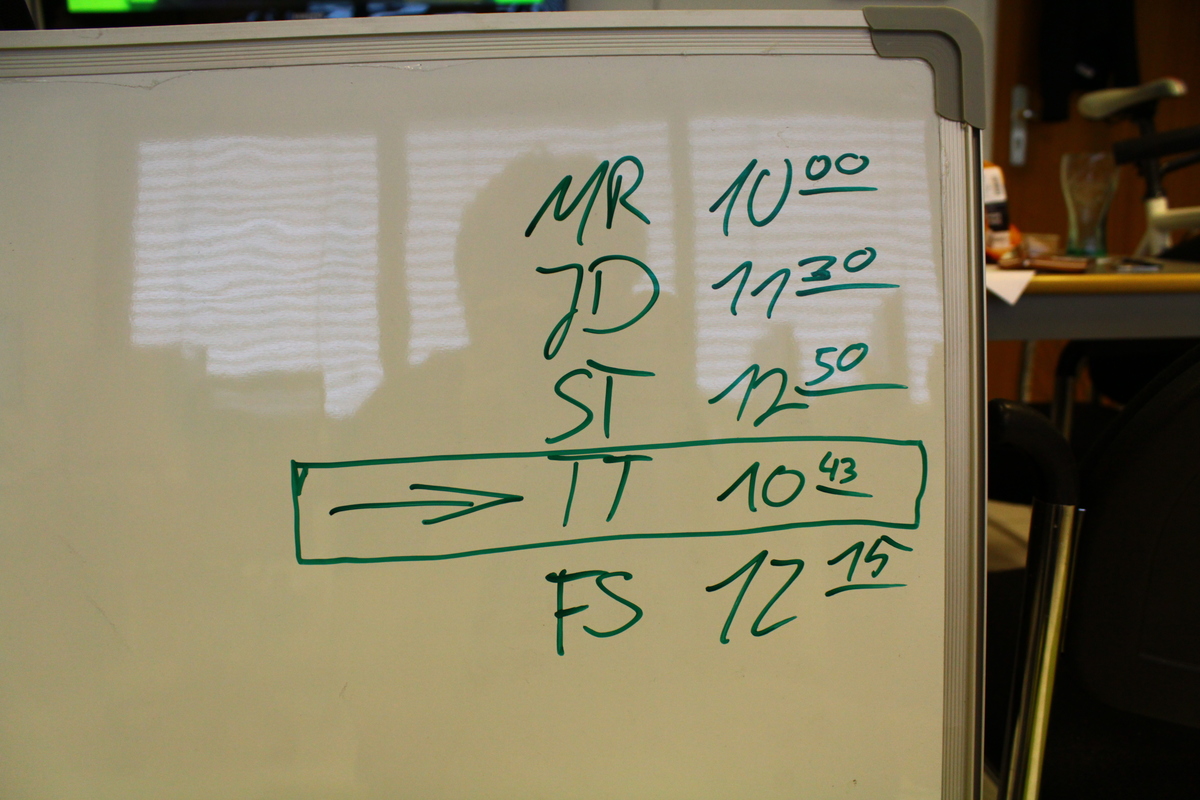 MR 10 00
JD 11 30
ST 12 50
TT 10 43
FS 12 15